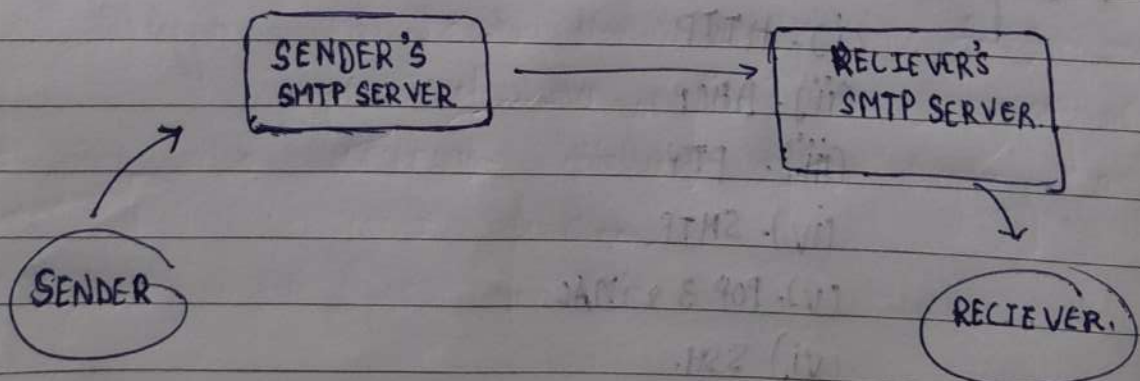 SENDER'S
SMTP SERVER
RECIEVER'S
SMTP SERVER
SENDER
RECIEVER.